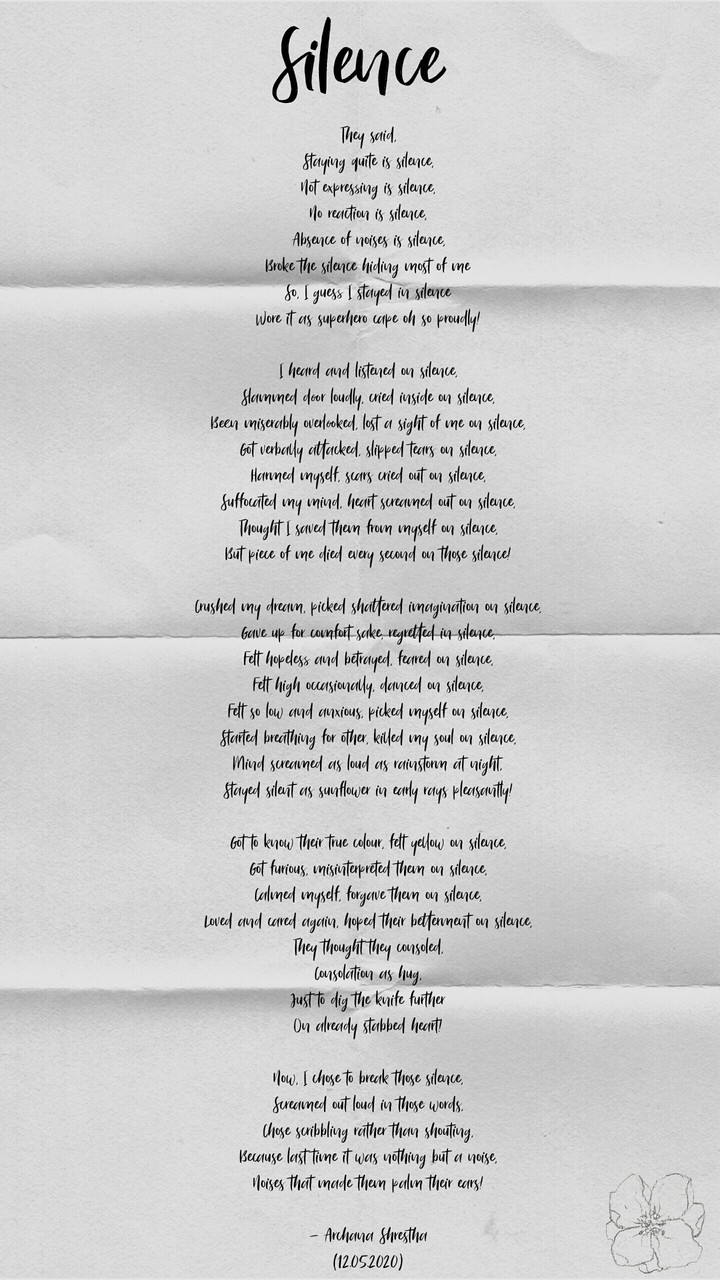 Silence
They said,
Staying quite is silence,
Not expressing is silence,
No reaction is silence,
Absence of noises is silence,
Broke the silence hiding most of me
So, I guess I stayed in silence
Wore it as superhero cape oh so proudly!
I heard and listened on silence,
Slammed door loudly, cried inside on silence,
Been miserably overlooked, lost a sight of me on silence,
Got verbally attacked, slipped tears on silence,
Harmed myself, scars cried out on silence,
Suffocated my mind, heart screamed out on silence,
Thought I saved them from myself on silence,
But piece of me died every second on those silence!
Crushed my dream, picked shattered imagination on silence,
Gave up for comfort sake, regretted in silence,
Felt hopeless and betrayed, feared on silence,
Felt high occasionally, danced on silence,
Felt so low and anxious, picked myself on silence,
Started breathing for other, killed my soul on silence,
Mind screamed as loud as rainstorm at night,
Stayed silent as sunflower in early rays pleasantly!
Got to know their true colour, felt yellow on silence,
Got furious, misinterpreted them on silence,
Calmed myself, forgave them on silence,
Loved and cared again, hoped their betterment on silence,
They thought they consoled,
Consolation as hug,
Just to dig the knife further
On already stabbed heart!
Now, I chose to break those silence,
Screamed out loud in those words,
Chose scribbling rather than shouting,
Because last time it was nothing but a noise,
Noises that made them palm their ears!
- Archana Shrestha
(12.05.2020)